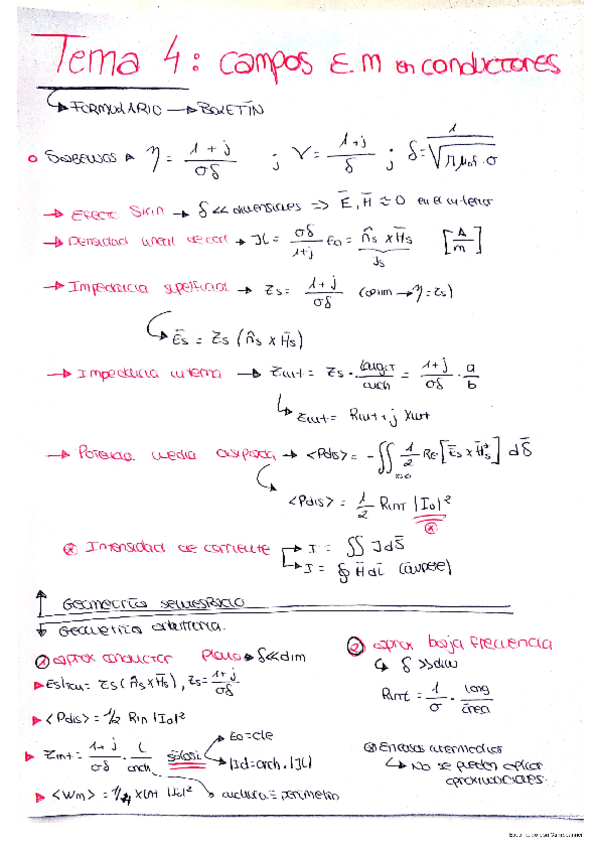 Tema 4: campos E.M en conductores
↳ FORMULARIO → BOLETÍN
o SABEMOS → η = (1+j)/(σδ) ; γ = (1+j)/δ ; δ = 1/√(πμ₀f·σ)
→ Efecto Skin → δ << dimensiones => Ē, H̄ ≈ 0 en el interior
→ Densidad lineal de corr → Jl = (σδ)/(1+j) E₀ = n̂s x H̄s [A/m]
Js
→ Impedancia superficial → Zs = (1+j)/(σδ) (com → η = Zs)
↳ Ēs = Zs (n̂s x H̄s)
→ Impedancia interna → Zint = Zs · longit/anch = (1+j)/(σδ) · a/b
↳ Zint = Rint + j Xint
→ Potencia media disipada → <Pdis> = -∬ 1/2 Re[Ēs x H̄s*] dS̄
<Pdis> = 1/2 RINT |I₀|²
⊗
⊗ Intensidad de corriente → I = ∬ J dS̄
→ I = ∮ H̄ dl̄ (Ampere)
↑ Geometría semiespacio
↓ Geometría arbitraria.
① aprox conductor plano → δ << dim
▸ Es = Zs (n̂s x H̄s), Zs = (1+j)/(σδ)
▸ <Pdis> = 1/2 Rin |I₀|²
▸ Zint = (1+j)/(σδ) · L/anch sólo si → E₀ = cte
→ |I| = anch · |Jl|
▸ <Wm> = 1/4 Xint |I₀|² anchura = perímetro
② aprox baja frecuencia
↳ δ >> dim
Rint = 1/σ · long/área
En casos intermedios
↳ No se pueden aplicar
aproximaciones.